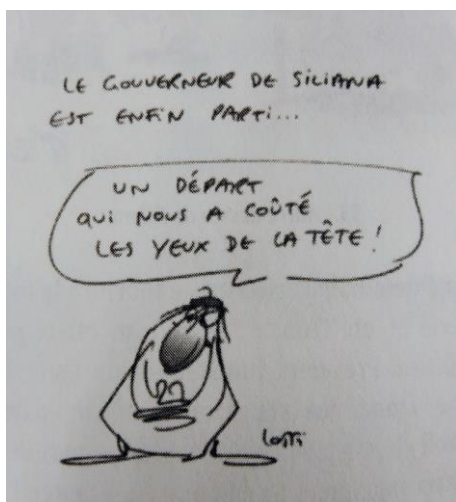 LE GOUVERNEUR DE SILIANA
EST ENFIN PARTI...
UN DÉPART
QUI NOUS A COÛTÉ
LES YEUX DE LA TÊTE !